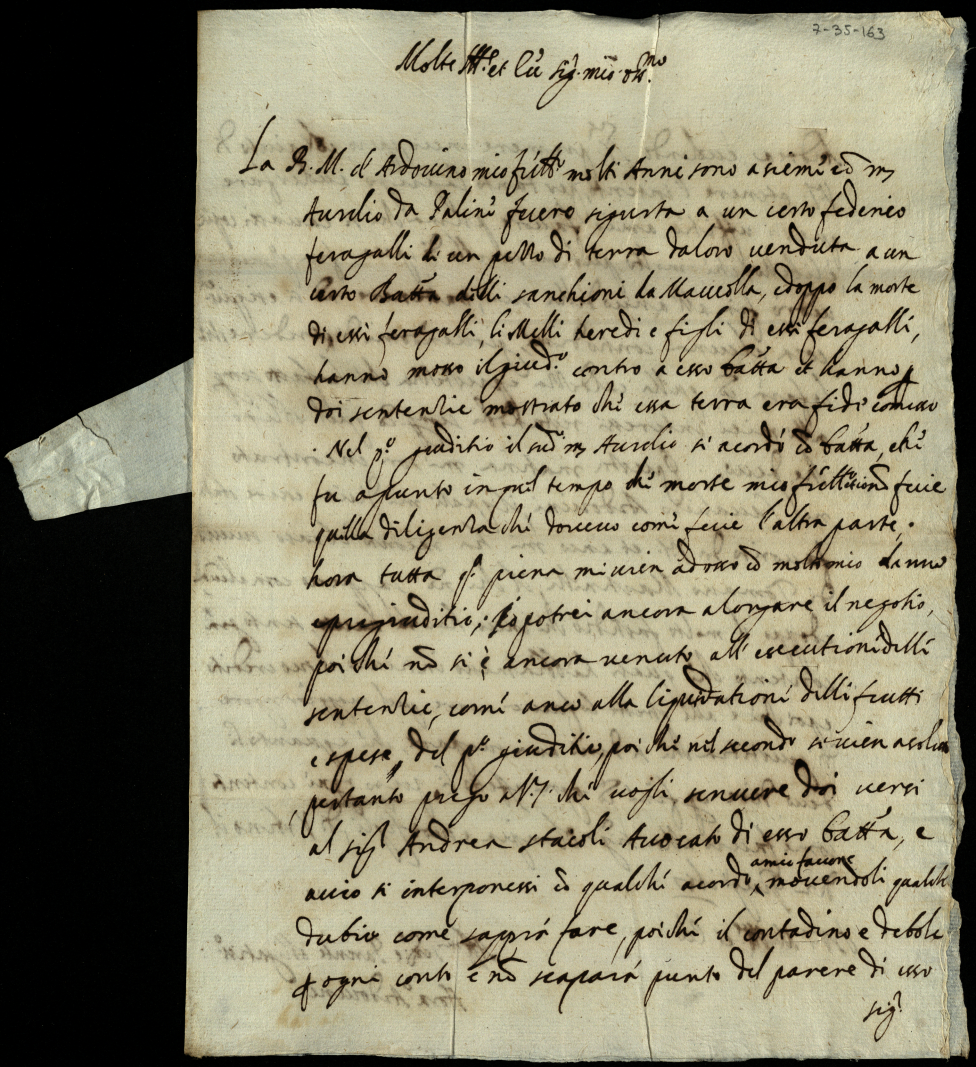 7-35-163
Molto Ill.re et Ecc. sig. mio oss.mo
La B. M. d'Ardovino mio frñte molti Anni sono asiemi cō m
Aurelio da Palini fuero sigurta a un certo federico
feragalli di un pezzo di terra daloro venduta a un
certo Batta delli sanchioni da Mavcolla, edoppo la morte
di essi feragalli, li Melli heredi e figli di essi feragalli,
hanno mosso il giud.o contro a esso batta et hanno p
doi sententie mostrato chi essa terra era fidi comisso
. Nel p.o giuditio il sud.o m Aurelio si acordò cō batta, chi
fu apunto in quel tempo chi morse mio frñte nō fecie
quella diligenza chi doveva comi fecie l'altra parte.
hora tutta q. piena mi vien adosso cō molto mio danno
e pregiuditio; io potrei ancora alongare il negotio,
poi chi nō si è ancora venuto all'esecutioni delli
sententie, comi anco alla liquidationi delli frutti
e spese, del p.o giuditio, poi chi nel secondo si vien asoluto
, pertanto prego V.S. chi vogli scrivere doi versi
al sig.r Andrea stacoli Avocato di esso batta, e
acio si interponessi cō qualchi acordo, movendoli qualchi
amio favore
dubio come sapprà fare, poichi il contadino e debole
p ogni conto e nō scaparà punto del parere di esso
sig.r